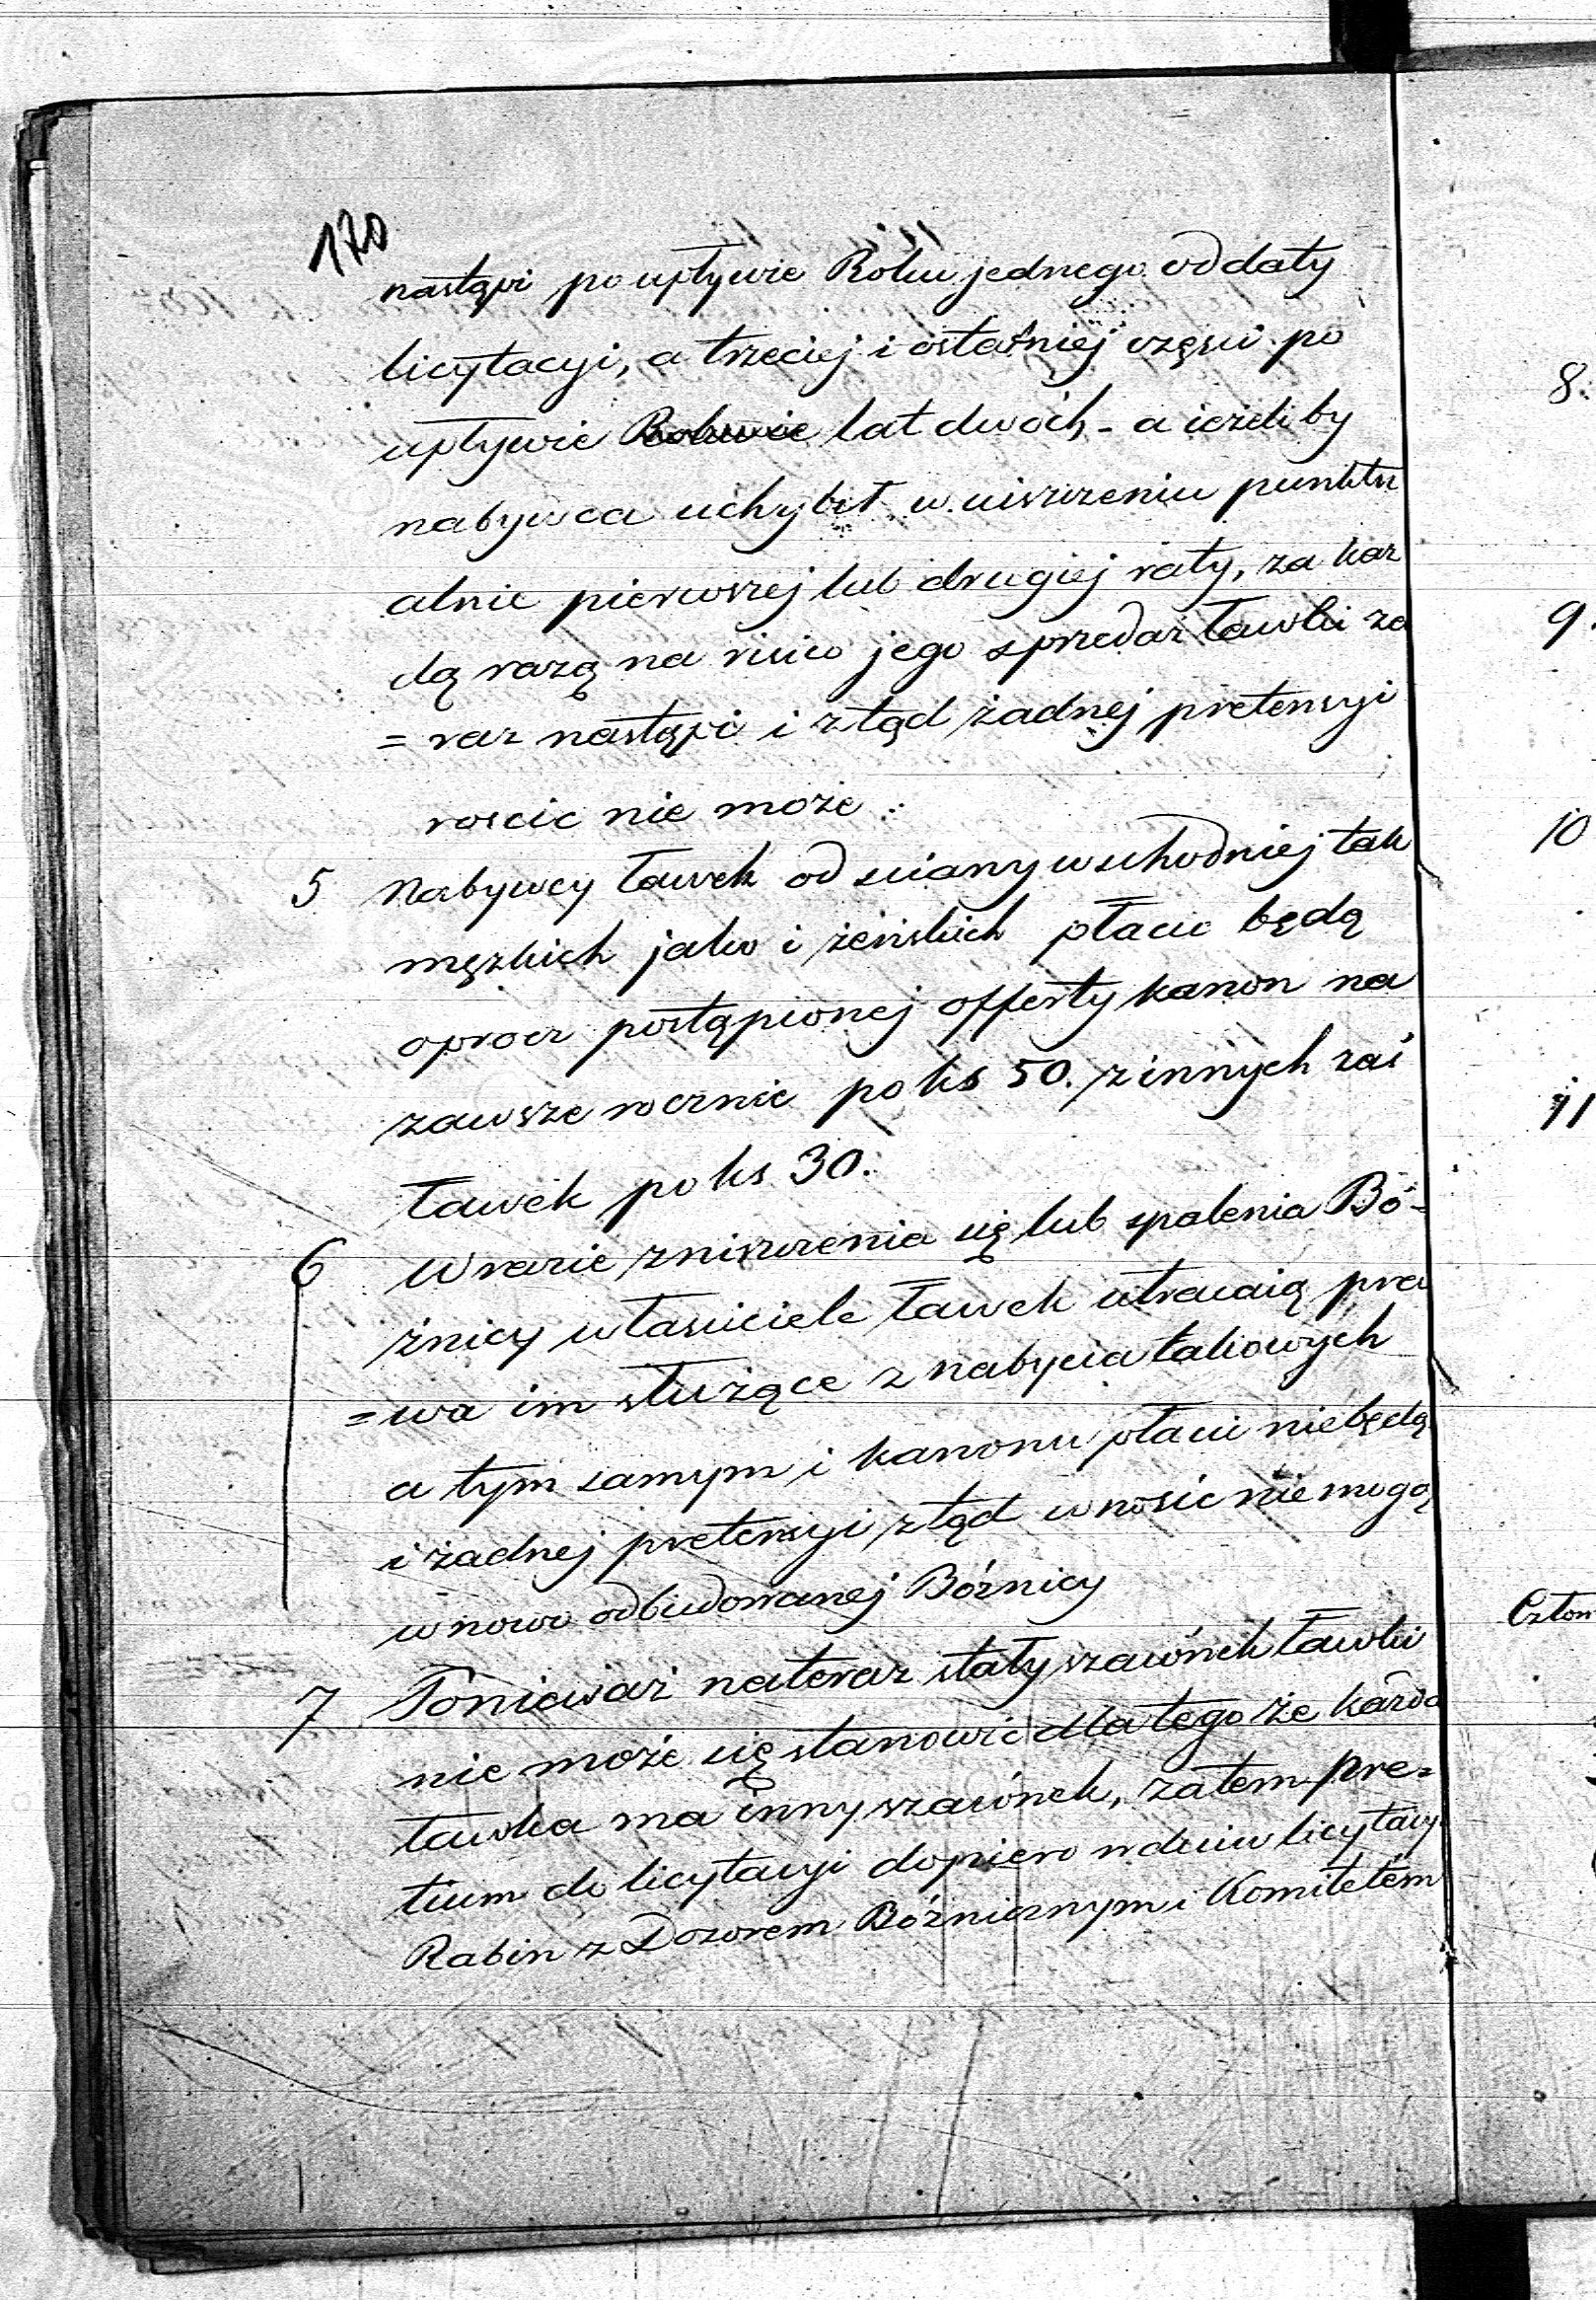 170
nastąpi po upływie Roku jednego od daty
licytacyi, a trzeciej i ostatniej częsci po
upływie lat dwóch - a ieżeli by
nabywca uchybił w uiszczeniu punktu
alnie pierwszej lub drugiej raty, za kaz
dą razą na risico jego sprzedaż ławki za
= raz nastąpi i ztąd żadnej pretensyi
roscic nie może.
5 Nabywcy ławek od sciany wschodniej tak
męzkich jako i żeńskich płacic będą
oprocz postąpionej offerty kanon na
zawsze rocznie po ks 50. z innych zaś
ławek po ks 30.
6 W razie zniszczenia się lub spalenia Bó=
żnicy własciciele ławek utracaią pra
= wa im służące z nabycia takowych
a tym samym i kanonu płacic niebędą
i żadnej pretensyi ztąd wnosic nie mogą
w nowo odbudowanej Bóżnicy
7 Poniewaz nateraz stały szacónek ławki
nie może się stanowic dla tego że kazda
ławka ma inny szacónek, zatem pre=
tium do licytacyi dopiero w dniu licytacyi
Rabin z Dozorem Bóżnicznym i Komitetem
8.
9.
10
11
Człon